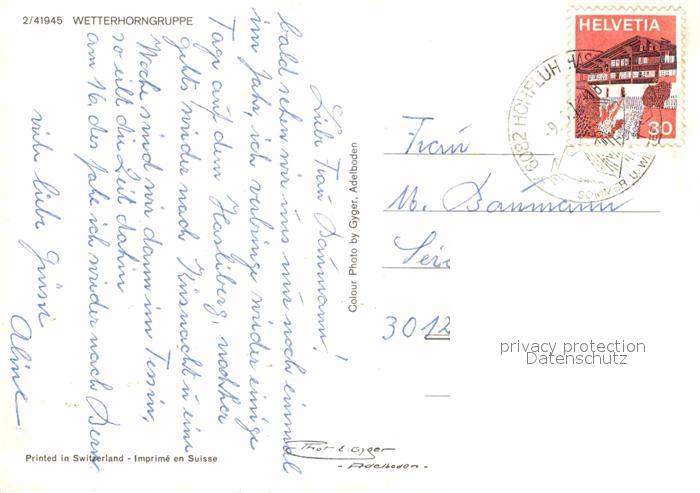 2/41945 WETTERHORNGRUPPE
Liebe Frau Baumann!
bald sehen wir uns nur noch einmal
im Jahr, ich verbringe wieder einige
Tage auf dem Hasliberg, nachher
gehts wieder nach Küsnacht u eine
Woche sind wir dann im Tessin,
so eilt die Zeit dahin
am 16. des fahre ich wieder nach Bern
viele liebe Grüsse
Aline
Printed in Switzerland - Imprimé en Suisse
Colour Photo by Gyger, Adelboden
Phot E. Gyger
- Adelboden -
HELVETIA
30
6082 HOHFLUH HAS
SOMMER U. WI
Frau
M. Baumann
3012
privacy protection
Datenschutz